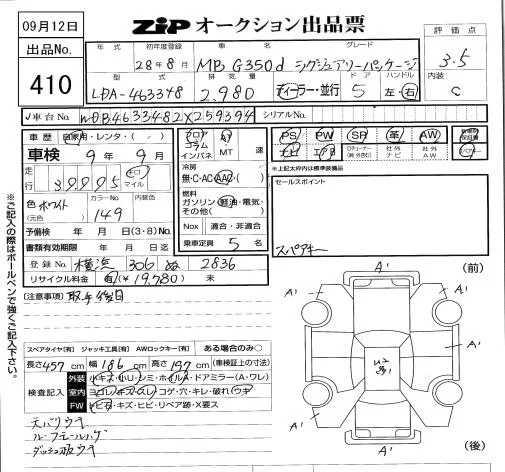 09月12日
ZiP オークション出品票
出品No.
410
年式 初年度登録 車名 グレード
28年8月 MB G350d ラグジュアリーパッケージ
型式 排気量 ドア ハンドル
LDA-463348 2.980 ディーラー・並行 5 左・右
評価点
3.5
内装
C
✓車台No. WDB4633482X259394 シリアルNo.
車歴 自家用・レンタ・( )
車検 9年 9月
走行 39995 キロ マイル
色 ホワイト カラーNo. 内装色
(元色) 149
予備検 年 月 日(3・8)No.
書類有効期限 年 月 日迄
登録No. 横浜 306 ぬ 2836
リサイクル料金 有(¥19,780) 未
フロア AT
コラム
インパネ MT 速
冷房
無・C・AC・AAC・( )
燃料
ガソリン・軽油・電気・
その他( )
Nox 適合・非適合
乗車定員 5 名
PS PW SR 革 AW
ナビ
社外ナビ 社外AW
*上記太枠内は標準装備品
セールスポイント
スペアキー
[注意事項] 取手後日
スペアタイヤ[有] ジャッキ工具[有] AWロックキー[有] ある場合のみ○
長さ457cm 幅186cm 高さ197cm (車検証上の寸法)
検査記入
外装 小キズ・小U・シミ・ホイルA・ドアミラー(A・ワレ)
室内 ヨゴレ・キズ・スレ・コゲ・穴・キレ・破れ(ウキ)
FW トビ石・キズ・ヒビ・リペア跡・X要ス
天バリウキ
ル-フモールハゲ
ダッシュ板ウキ
(前)
A'
A' A'
A'
A' A'
A'
(後)
※ご記入の際はボールペンで強くご記入下さい。